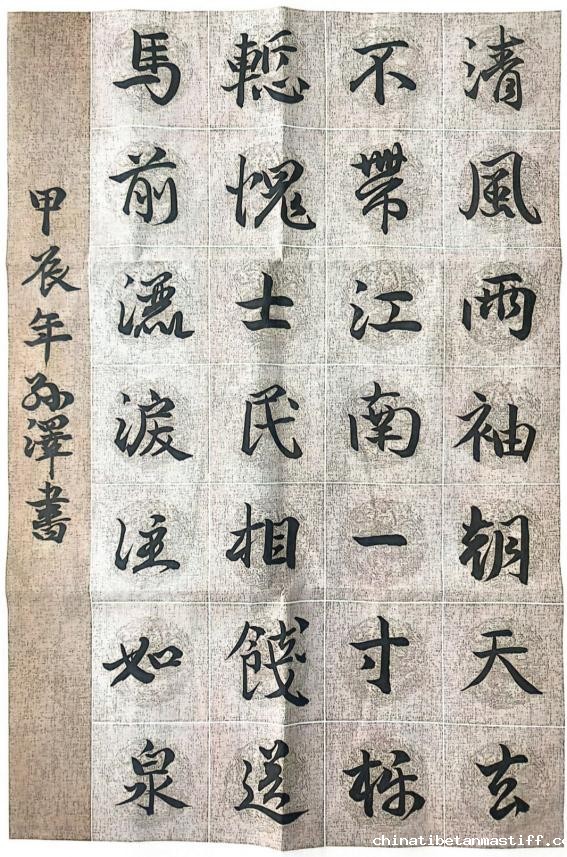 清風兩袖朝天去
不帶江南一寸棉
慙愧士民相餞送
馬前灑淚注如泉
甲辰年孫澤書
chinatibetanmastiff.co